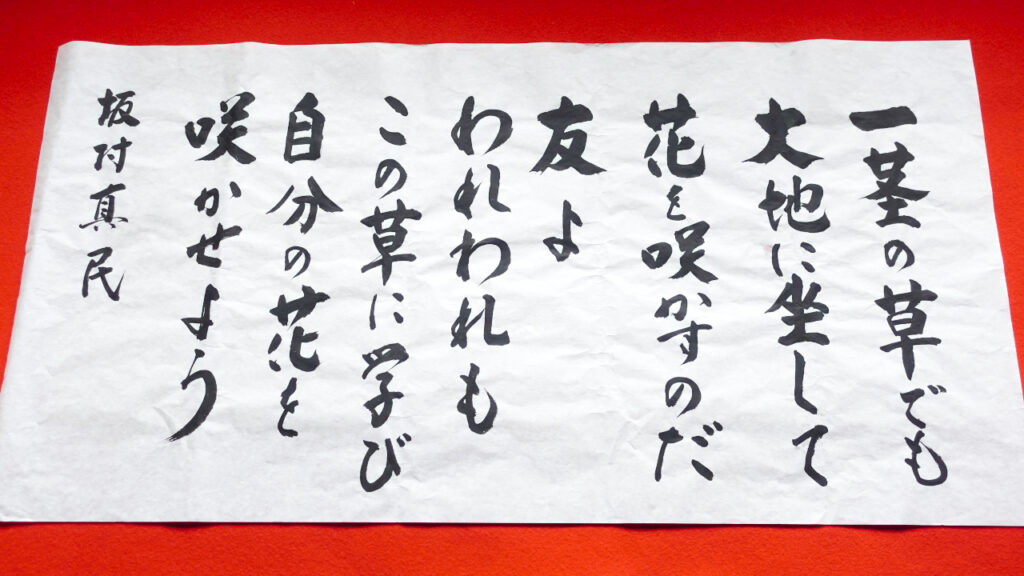 一茎の草でも
大地に坐して
花を咲かすのだ
友よ
われわれも
この草に学び
自分の花を
咲かせよう
坂村真民